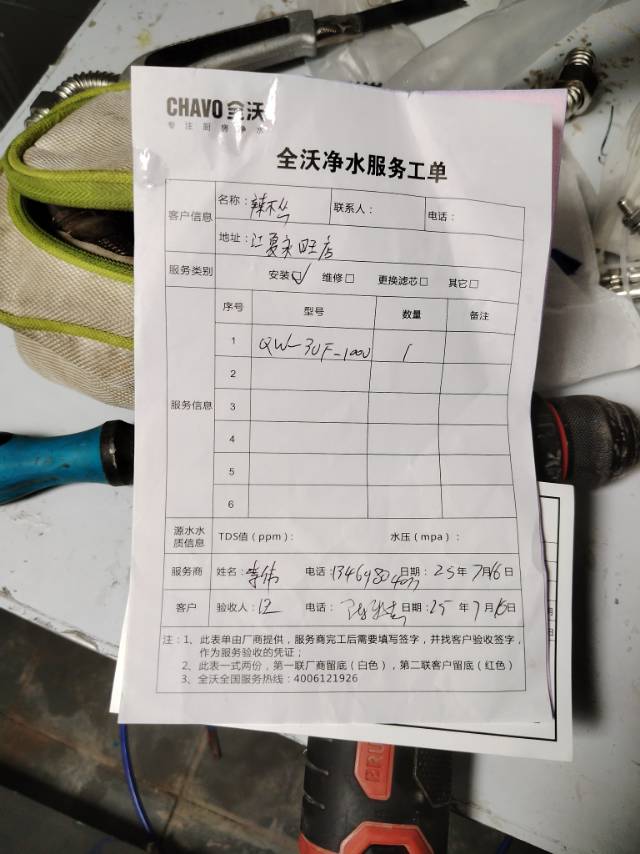 CHAVO 全沃
专注厨房净水
全沃净水服务工单
客户信息
名称：辣不怂 联系人： 电话：
地址：江夏永旺店
服务类别 安装☑ 维修□ 更换滤芯□ 其它□
服务信息
序号 型号 数量 备注
1 QW-3UF-1000 1
2
3
4
5
6
源水水质信息 TDS值（ppm）： 水压（mpa）：
服务商 姓名：李伟 电话： 日期：25年7月16日
客户 验收人： 电话： 日期：25年7月16日
注：1、此表单由厂商提供，服务商完工后需要填写签字，并找客户验收签字，
作为服务验收的凭证；
2、此表一式两份，第一联厂商留底（白色），第二联客户留底（红色）
3、全沃全国服务热线：4006121926